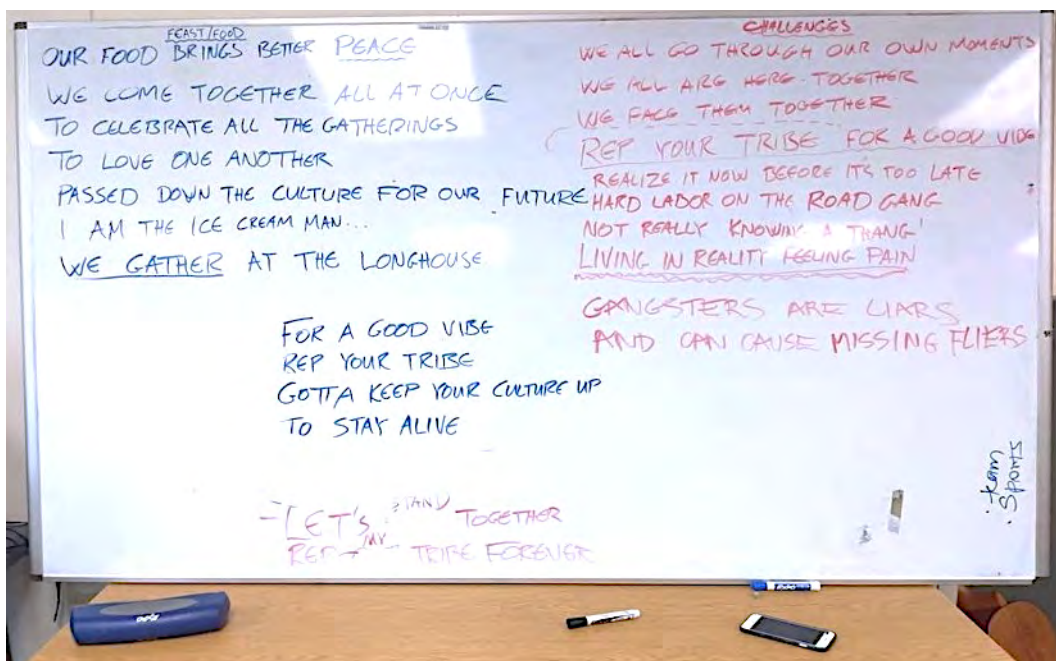 FEAST/FOOD
OUR FOOD BRINGS BETTER PEACE
WE COME TOGETHER ALL AT ONCE
TO CELEBRATE ALL THE GATHERINGS
TO LOVE ONE ANOTHER
PASSED DOWN THE CULTURE FOR OUR FUTURE
I AM THE ICE CREAM MAN...
WE GATHER AT THE LONGHOUSE
FOR A GOOD VIBE
REP YOUR TRIBE
GOTTA KEEP YOUR CULTURE UP
TO STAY ALIVE
- LET'S STAND TOGETHER
REP MY TRIBE FOREVER
CHALLENGES
WE ALL GO THROUGH OUR OWN MOMENTS
WE ALL ARE HERE TOGETHER
WE FACE THEM TOGETHER
REP YOUR TRIBE FOR A GOOD VIBE
REALIZE IT NOW BEFORE IT'S TOO LATE
HARD LABOR ON THE ROAD GANG
NOT REALLY KNOWIN' A THANG'
LIVING IN REALITY FEELING PAIN
GANGSTERS ARE LIARS
AND CAN CAUSE MISSING FLIERS
· team
· Sports